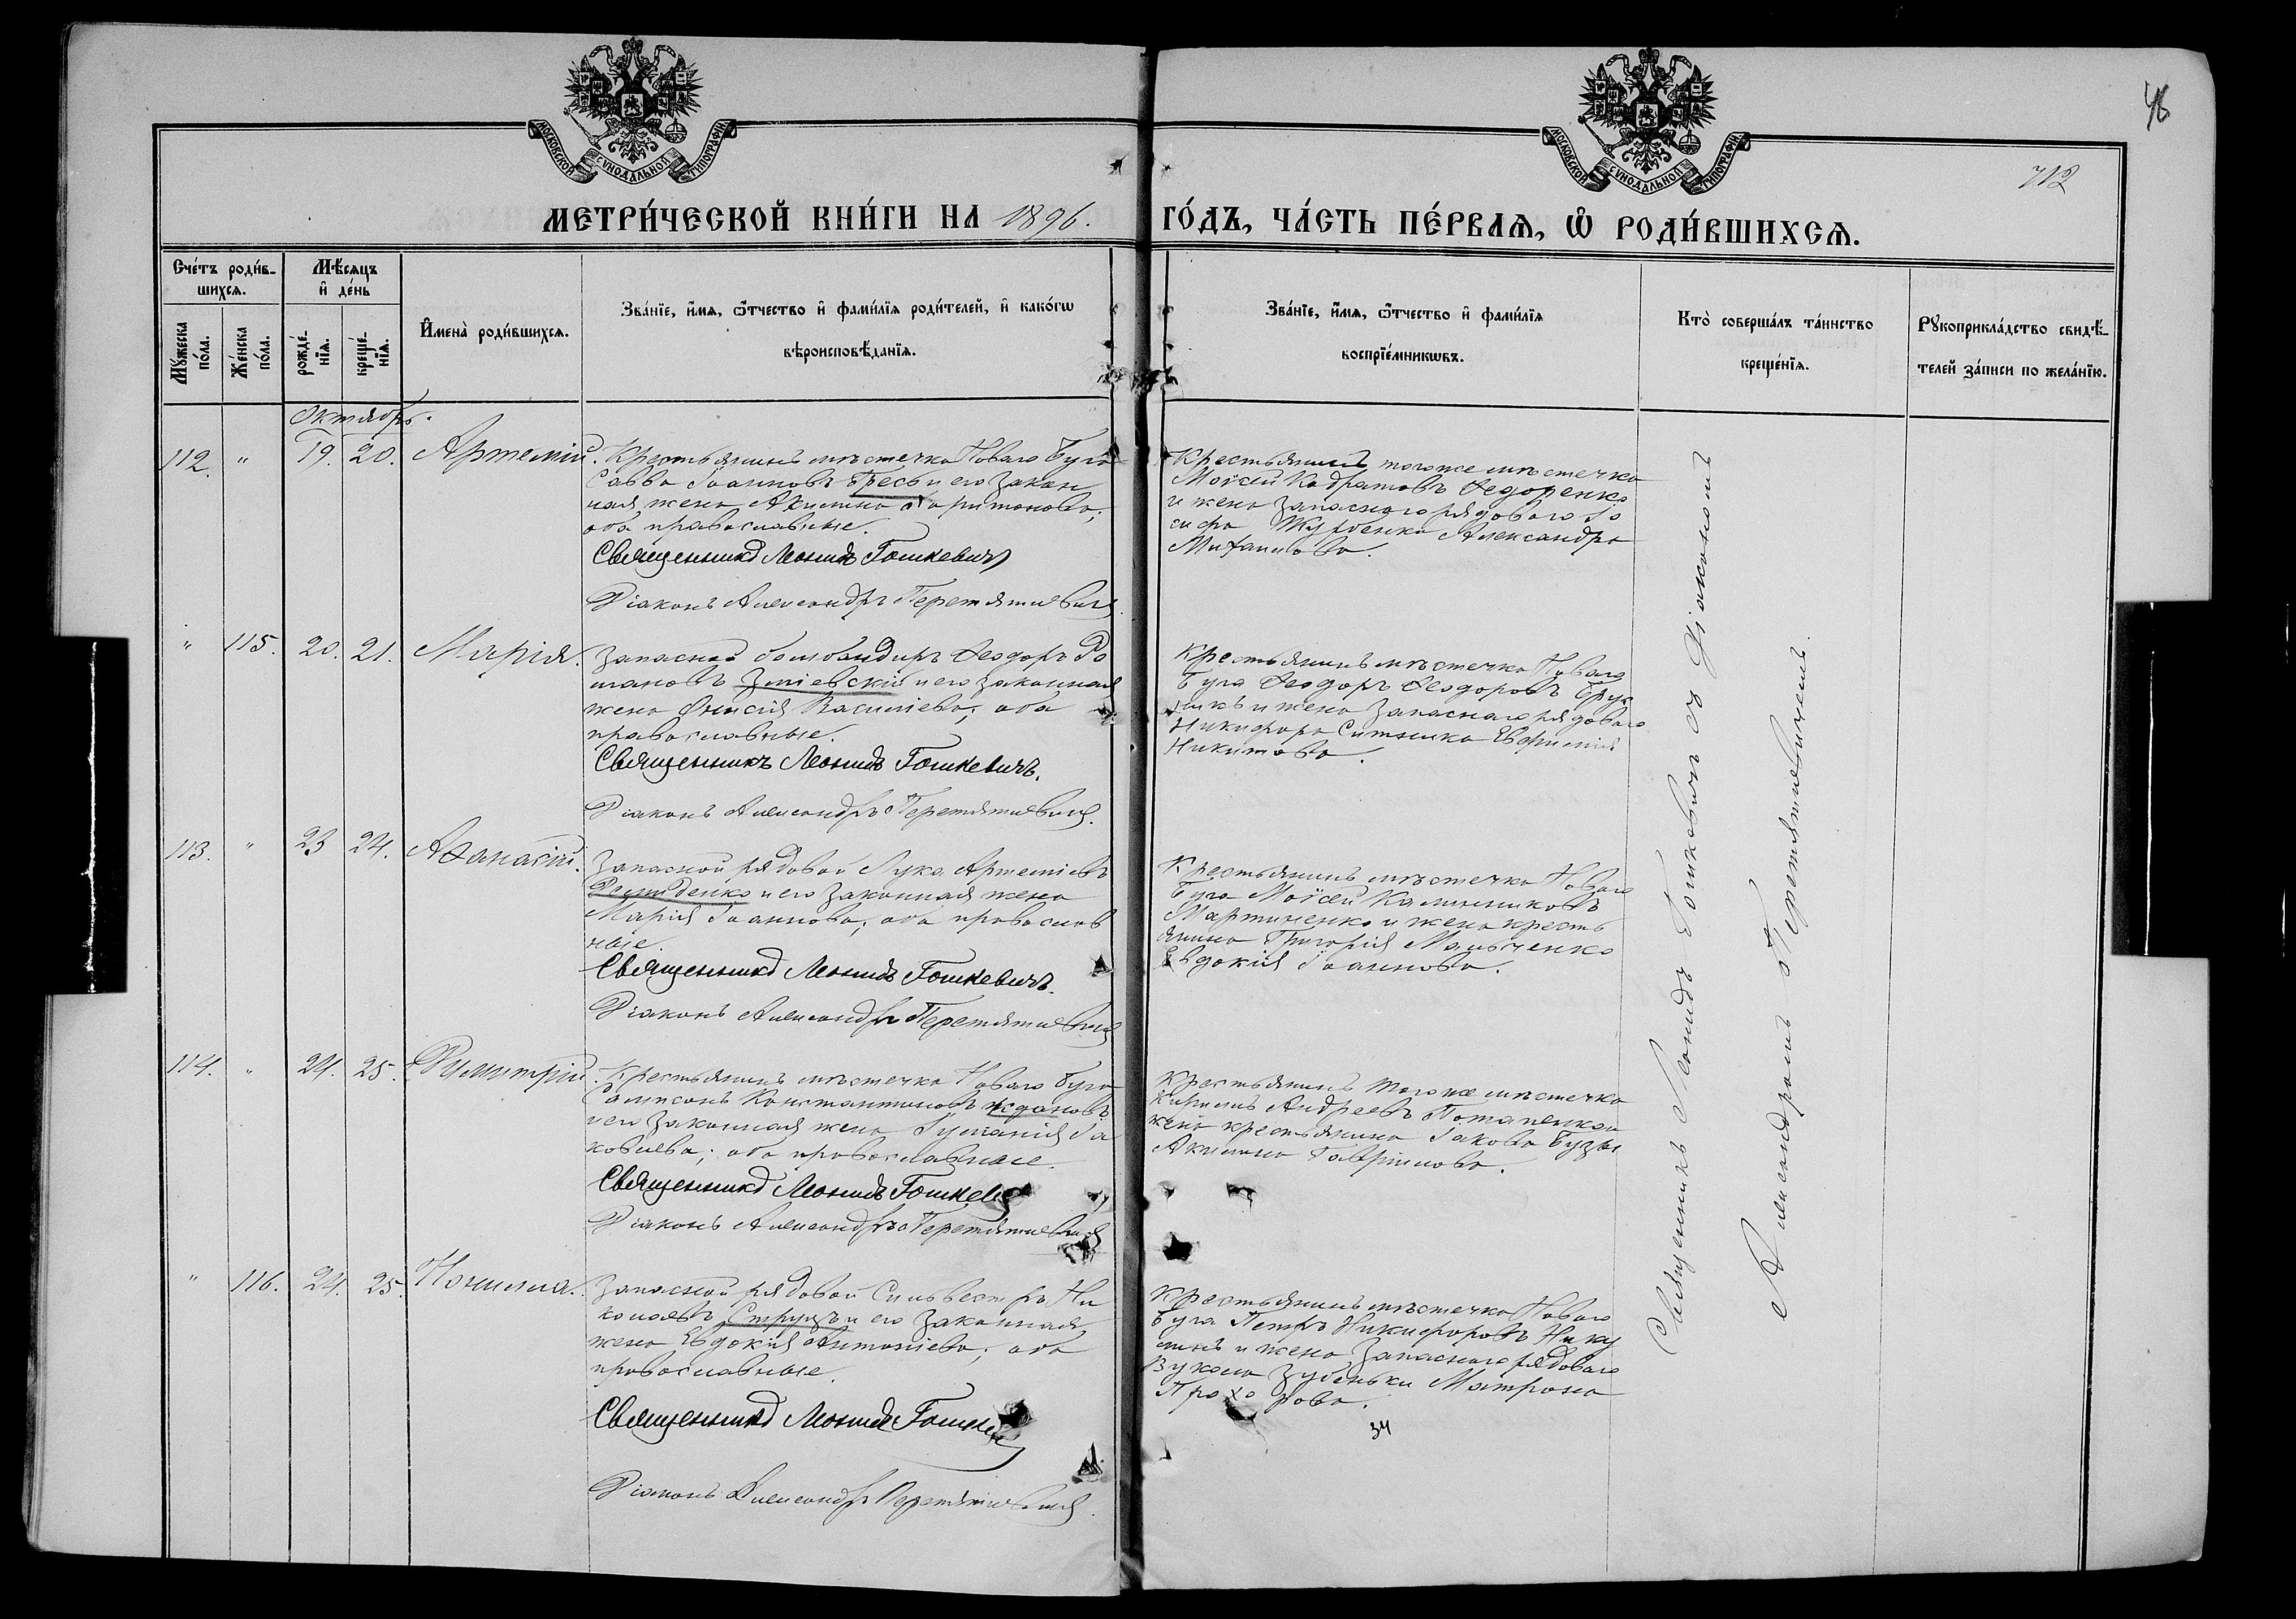 46
712
МОСКОВСКОЙ СѴНОДАЛЬНОЙ ТИПОГРАФІИ
МОСКОВСКОЙ СѴНОДАЛЬНОЙ ТИПОГРАФІИ
МЕТРИ́ЧЕСКОЙ КНИ́ГИ НА 1896. ГО́ДЪ, ЧА́СТЬ ПЕ́РВАѦ, Ѡ҆ РОДИ́ВШИХСѦ.
Сче́тъ роди́в-
шихсѧ.
Мꙋ́жеска
по́ла.
Же́нска
по́ла.
Мѣ́сѧцъ
и҆ де́нь
рожде́-
нїѧ.
креще́-
нїѧ.
И҆мена̀ роди́вшихсѧ.
Зва́нїе, и҆́мѧ, ѻ҆́тчество и҆ фами́лїѧ роди́телей, и҆ како́гѡ
вѣроисповѣ́данїѧ.
Зва́нїе, и҆́мѧ, ѻ҆́тчество и҆ фами́лїѧ
воспрїе́мникѡвъ.
Кто̀ соверша́лъ та́инство
креще́нїѧ.
Рꙋкоприкла́дство свидѣ́-
телей за́писи по жела́нїю.
Октябрь.
112. " 19. 20. Артемій.
Крестьянинъ мѣстечка Новаго Буга
Савва Іоанновъ Гресь и его закон
ная жена Акилина Харитонова;
оба православные.
Священникъ Леонидъ Гошкевичъ
Діаконъ Александръ Перетятковичъ
Крестьянинъ тогоже мѣстечка
Моѵсей Кодратовъ Ѳедоренко
и жена запаснаго рядоваго Іо
сифа Журбенка Александра
Михаилова.
" 115. 20. 21. Марія.
Запасной бомбандиръ Ѳеодоръ Ро
мановъ Зміевскій и его законная
жена Онисія Василіева; оба
православные.
Священникъ Леонидъ Гошкевичъ.
Діаконъ Александръ Перетятковичъ.
Крестьянинъ мѣстечка Новаго
Буга Ѳеодоръ Ѳеодоровъ
и жена запаснаго рядоваго
Никифора Ситника Евфимія
Никитова.
113. " 23 24. Аѳанасій.
Запасной рядовой Лука Артеміевъ
и его законная жена
Марія Іоаннова; оба православ
ные.
Священникъ Леонидъ Гошкевичъ.
Діаконъ Александръ Перетятковичъ
Крестьянинъ мѣстечка Новаго
Буга Моѵсей Калинниковъ
Мартиненко и жена кресть
янина Григорія Мальченко
Евдокія Іоаннова.
114. " 24. 25. Димитрій.
Крестьянинъ мѣстечка Новаго Буга
Сампсонъ Константиновъ Ждановъ
и его законная жена Іуліанія Іа
ковлева; оба православные.
Священникъ Леонидъ Гошкевичъ
Діаконъ Александръ Перетятковичъ
Крестьянинъ тогоже мѣстечка
Кириллъ Андреевъ
жена крестьянина Іакова Бузы
Акилина Гавріилова.
" 116. 24. 25. Нонилла.
Запасной рядовой Сильвестръ Ни
колаевъ Струцъ и его законная
жена Евдокія Антоніева; оба
православные.
Священникъ Леонидъ Гошкевичъ
Діаконъ Александръ Перетятковичъ.
Крестьянинъ мѣстечка Новаго
Буга Петръ Никифоровъ Нику
линъ и жена запаснаго рядоваго
Вукола Зубеньки Матрона
Прохорова.
34
Священникъ Леонидъ Гошкевичъ съ діакономъ
Александромъ Перетятковичемъ.